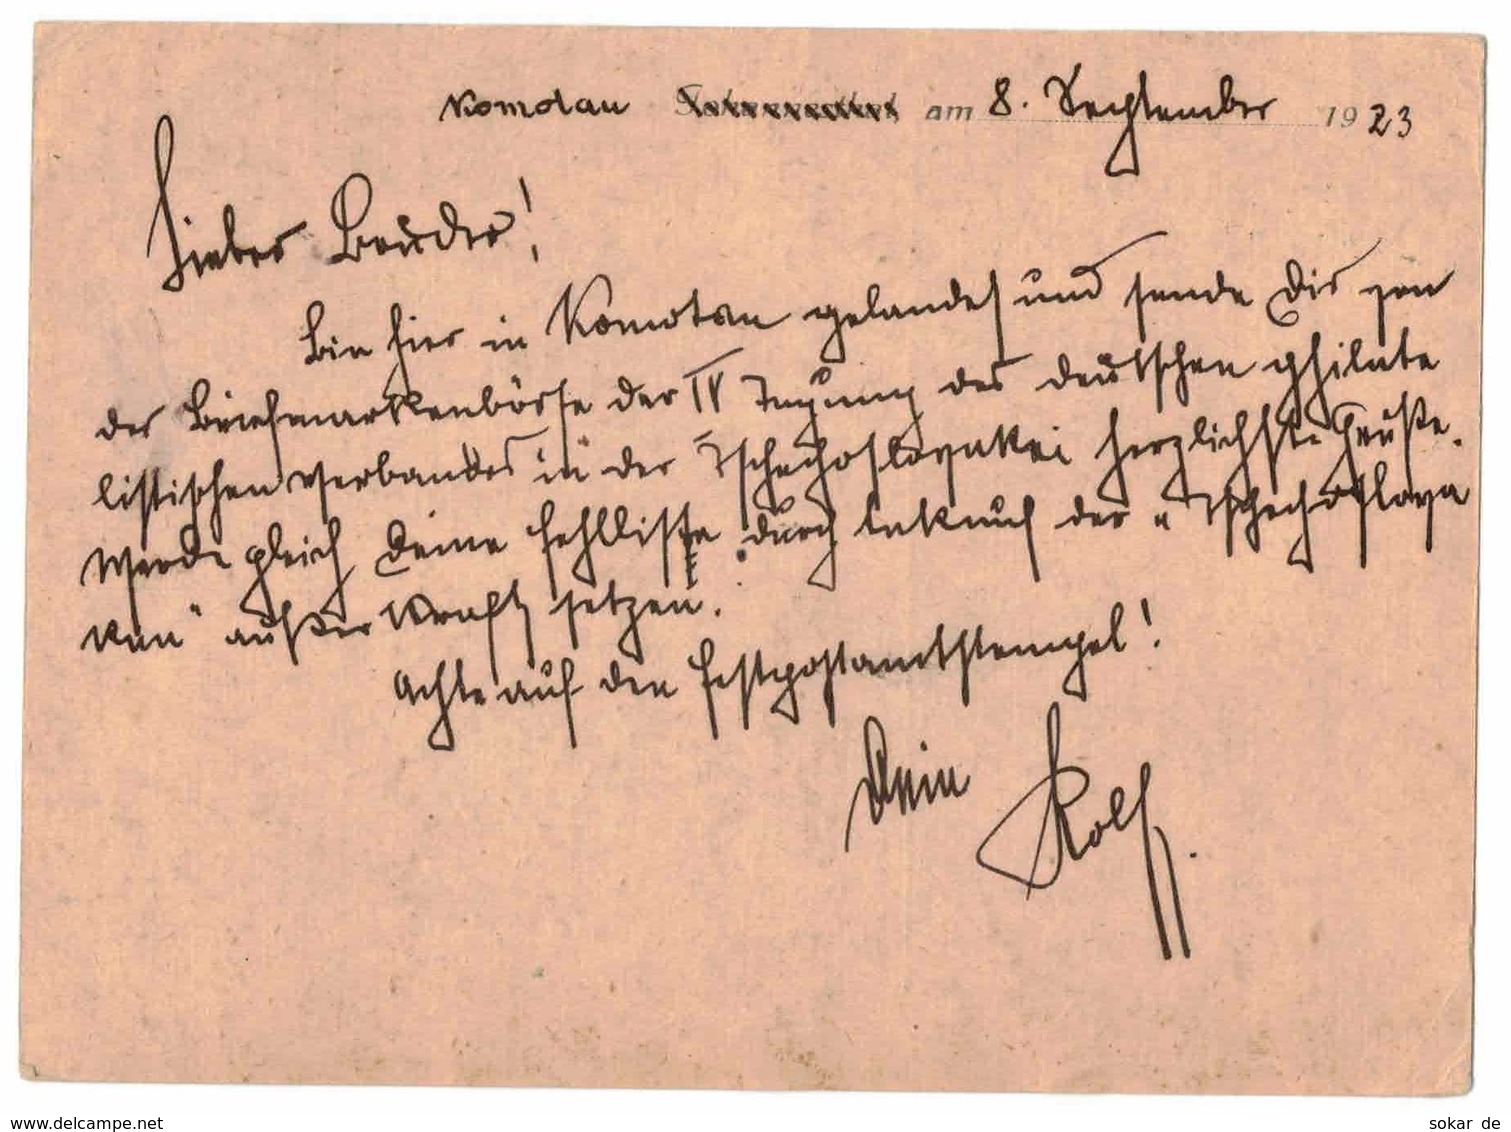 Komotau am 8. September 1923
Lieber Bruder!
Bin hier in Komotau gelandet und sende Dir von
der Briefmarkenbörse der IV Tagung des deutschen phila­te
listischen Verbandes in der Tschechoslovakei herzlichste Grüße.
Werde gleich Deine Fehlliste durch Ankauf der "Tschechoslova
ken" außer Kraft setzen.
Achte auf den Festpostamtstempel!
Dein Rolf.
www.delcampe.net sokar de